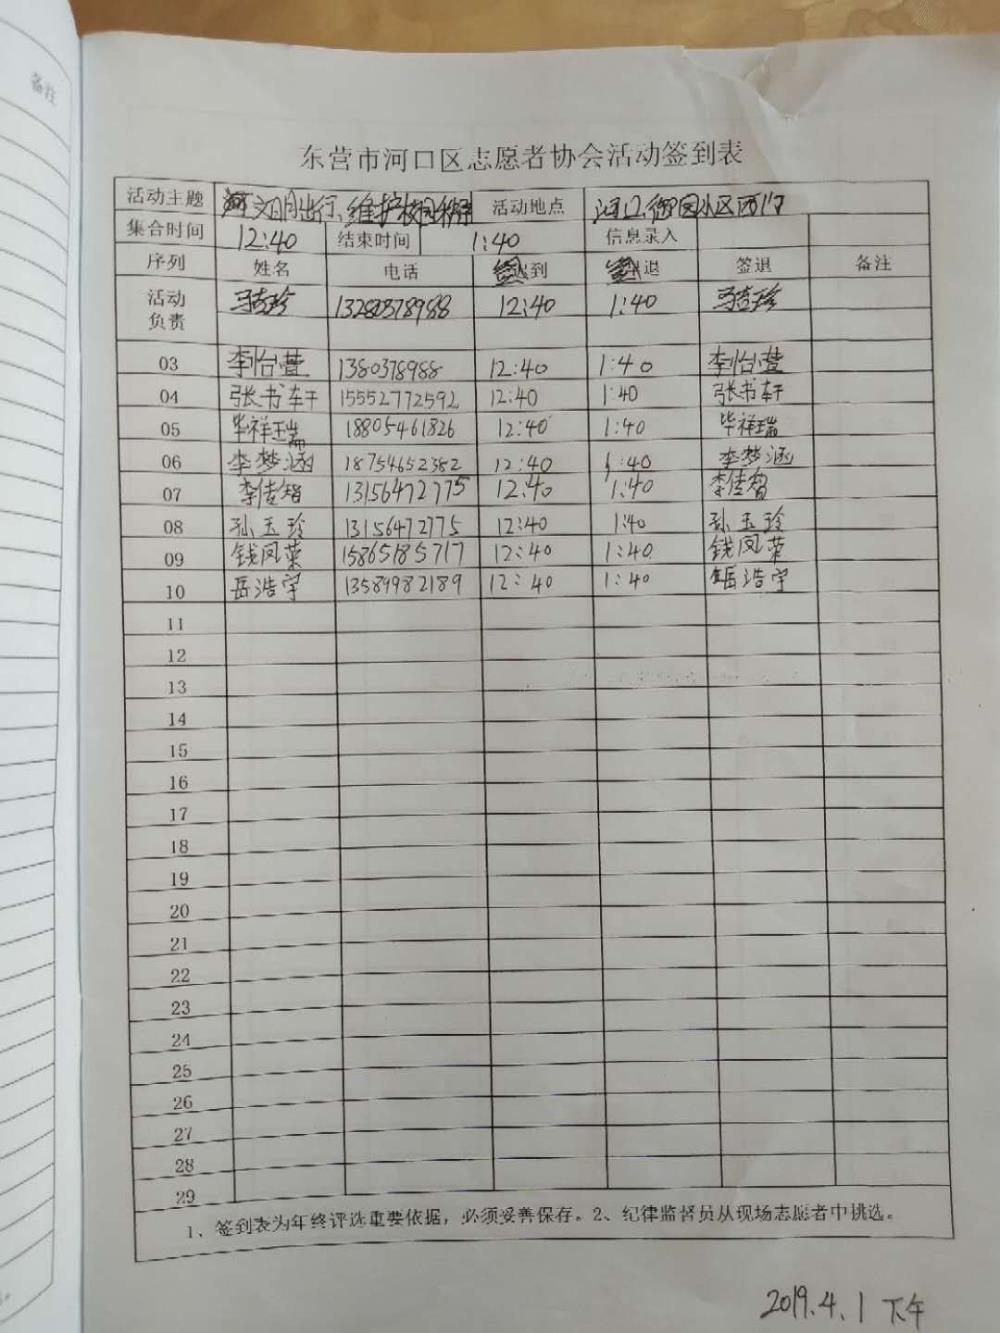 备注
东营市河口区志愿者协会活动签到表
活动主题 文明出行、维护校园秩序 活动地点 河口御园小区西门
集合时间 12:40 结束时间 1:40 信息录入
序列 姓名 电话 到 退 签退 备注
活动负责 马吉珍 13280378988 12:40 1:40 马吉珍
03 李怡萱 1380378988 12:40 1:40 李怡萱
04 张书轩 15552772592 12:40 1:40 张书轩
05 毕祥瑞 18805461826 12:40 1:40 毕祥瑞
06 李梦涵 18754652382 12:40 1:40 李梦涵
07 李佳智 13156472775 12:40 1:40 李佳智
08 孙玉玲 13156472775 12:40 1:40 孙玉玲
09 钱凤荣 15865185717 12:40 1:40 钱凤荣
10 岳浩宇 13589982189 12:40 1:40 岳浩宇
11
12
13
14
15
16
17
18
19
20
21
22
23
24
25
26
27
28
29
1、签到表为年终评选重要依据，必须妥善保存。2、纪律监督员从现场志愿者中挑选。
2019.4.1 下午